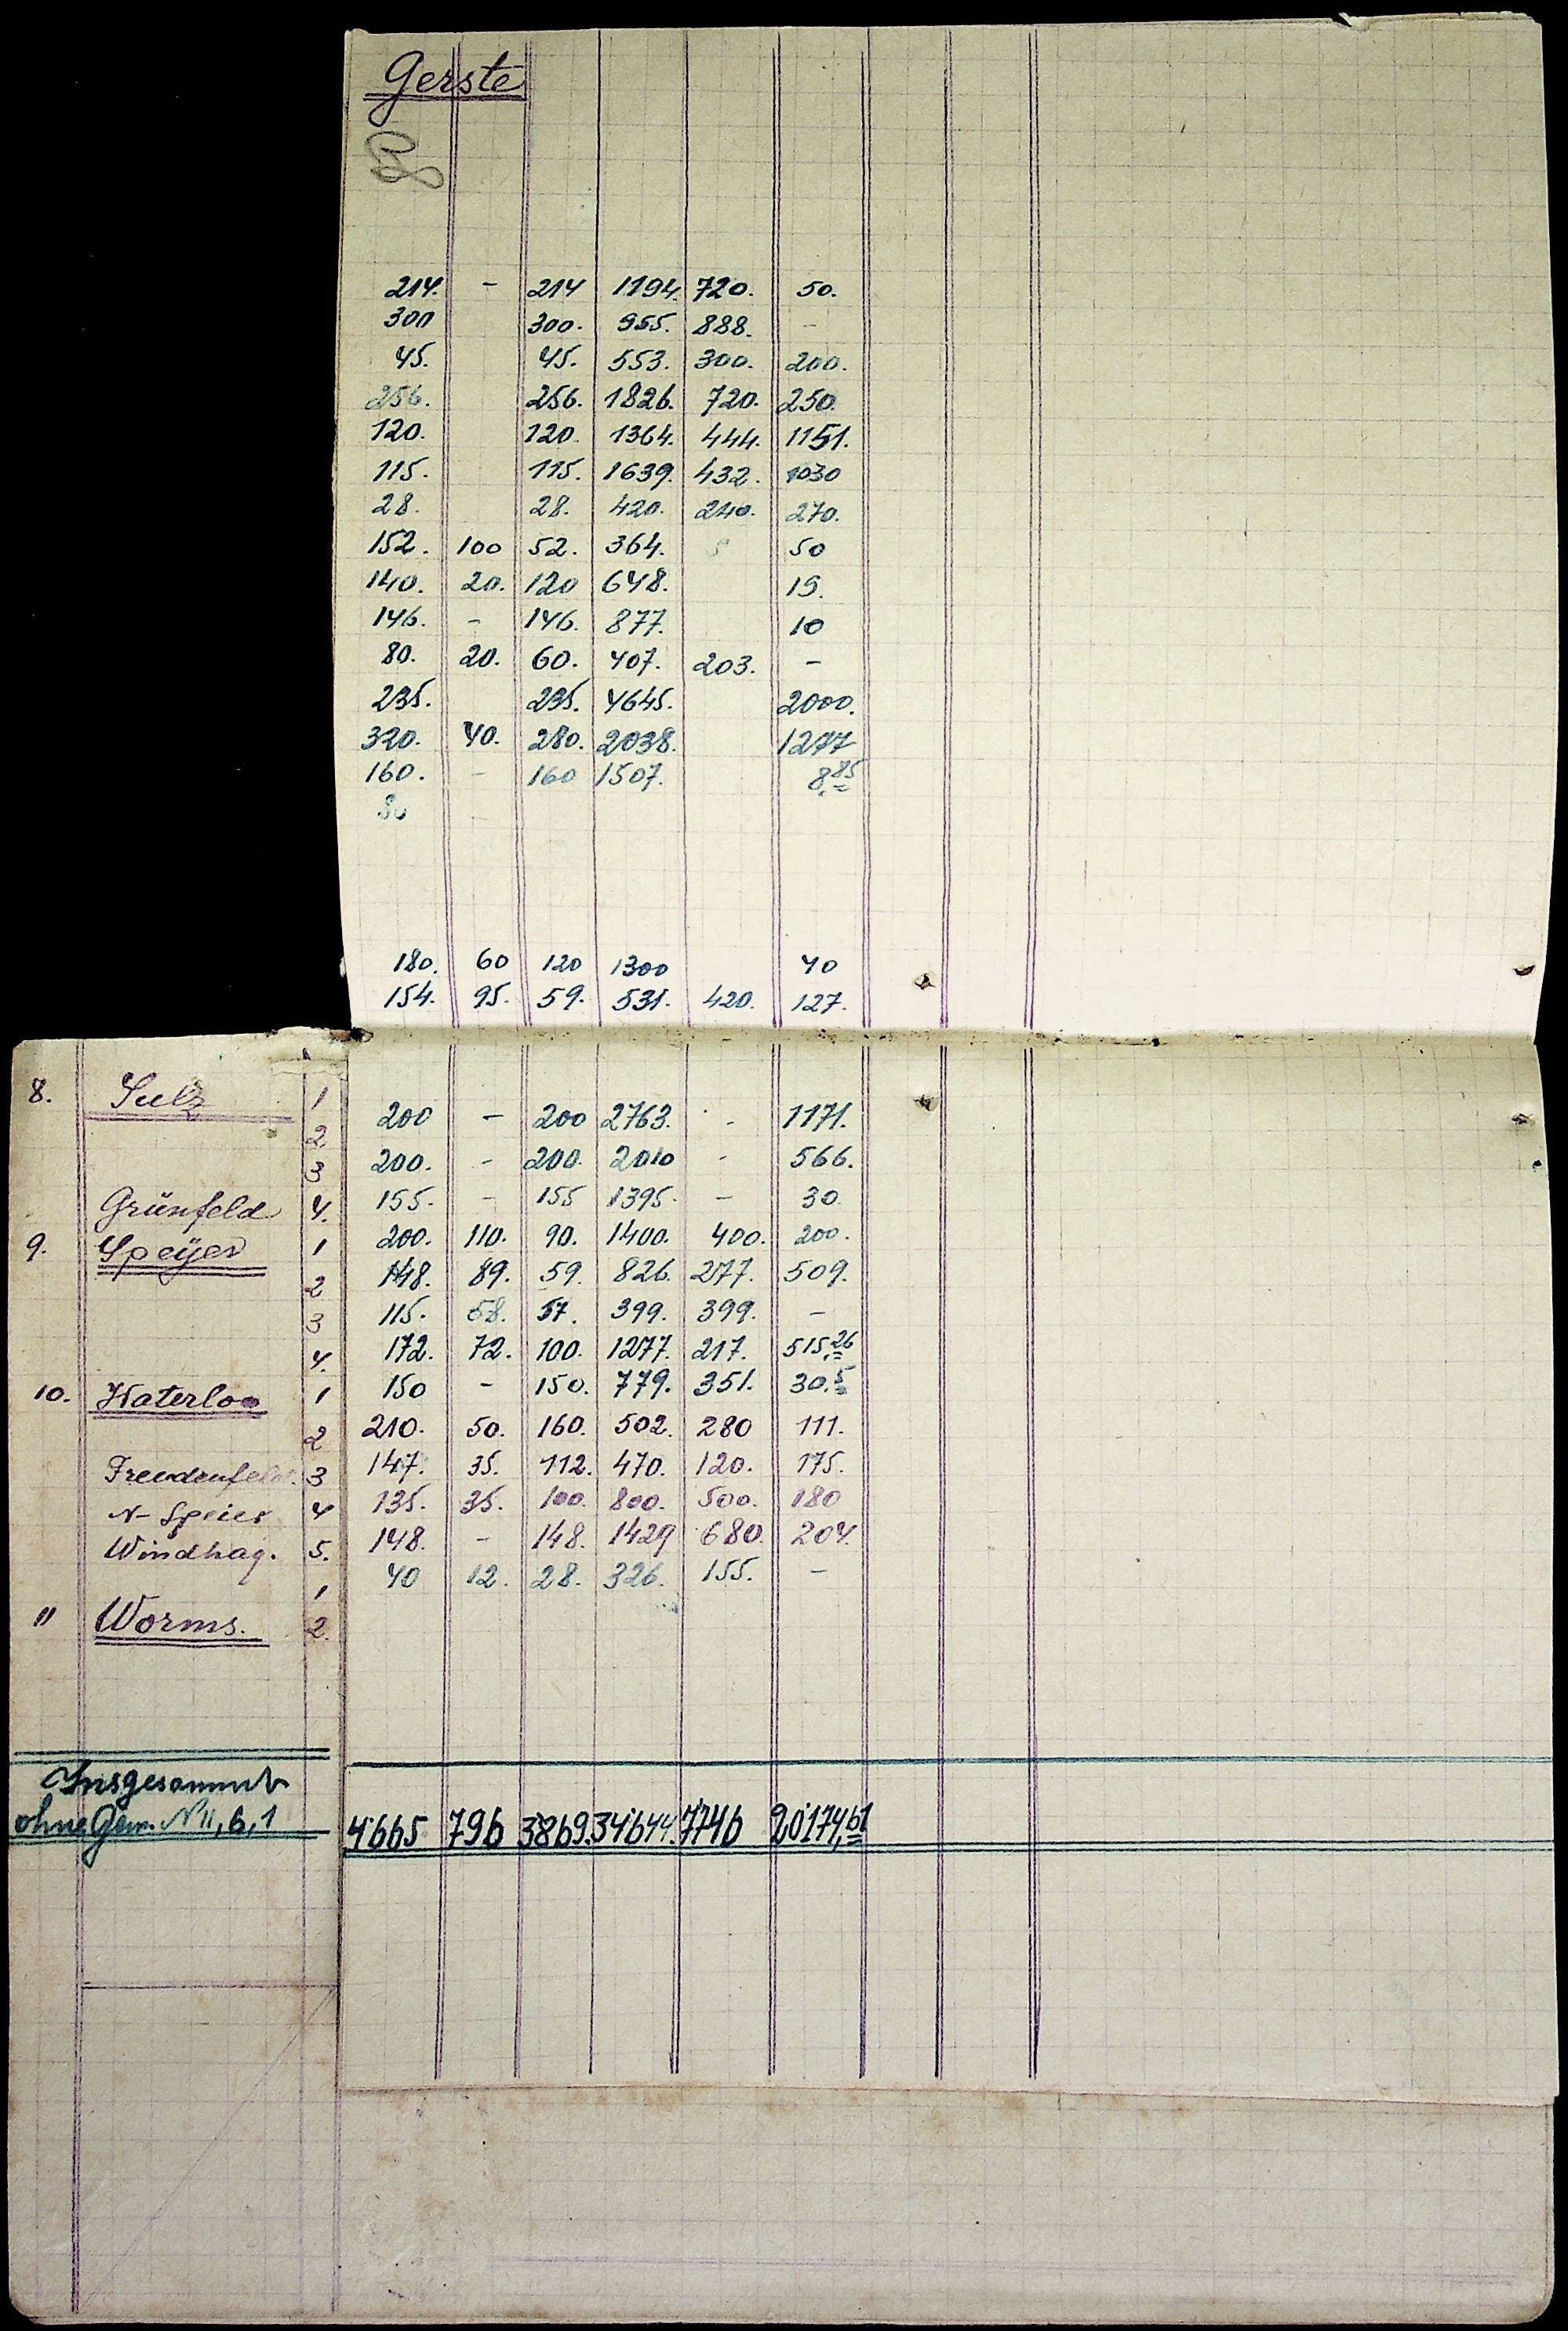 Gerste
214. - 214 1194. 720. 50.
300 300. 955. 888. -
45. 45. 553. 300. 200.
256. 256. 1826. 720. 250.
120. 120. 1364. 444. 1151.
115. 115. 1639. 432. 1030
28. 28. 420. 240. 270.
152. 100 52. 364. 50
140. 20. 120 648. 19.
146. - 146. 877. 10
80. 20. 60. 407. 203. -
235. 235. 4645. 2000.
320. 40. 280. 2038. 1277
160. - 160 1507. 8,85
80
180. 60 120 1300 40
154. 95. 59. 531. 420. 127.
8. Sulz 1 200 - 200 2763. - 1171.
2 200. - 200. 2010 - 566.
3 155. - 155 1395. - 30.
Grünfeld 4. 200. 110. 90. 1400. 400. 200.
9. Speÿer 1 148. 89. 59. 826. 277. 509.
2 115. 58. 57. 399. 399. -
3 172. 72. 100. 1277. 217. 515,26
4. 150 - 150. 779. 351. 30,5
10. Waterloo 1 210. 50. 160. 502. 280 111.
2 147. 35. 112. 470. 120. 175.
Freudenfeld. 3 135. 35. 100. 800. 500. 180
N-Speier 4 148. - 148. 1429 680. 204.
Windhag. 5. 40 12. 28. 326. 155. -
1
11 Worms. 2.
Insgesammt
ohne Gem. N 11, 6, 1 4665 796 3869. 34644. 7746 20174,61